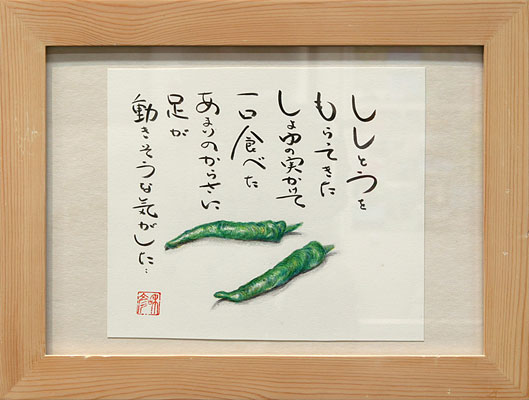 ししとうを
もらってきた
しょゆの実かけて
一口食べた
あまりのからさに
足が
動きそうな気がした…